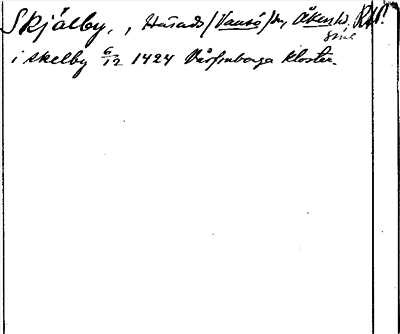 Skjälby, , Husads/(Vansö)/sn, Åkers hd, RA!
Söml
i skelby 6/12 1424 Vårfruberga kloster.